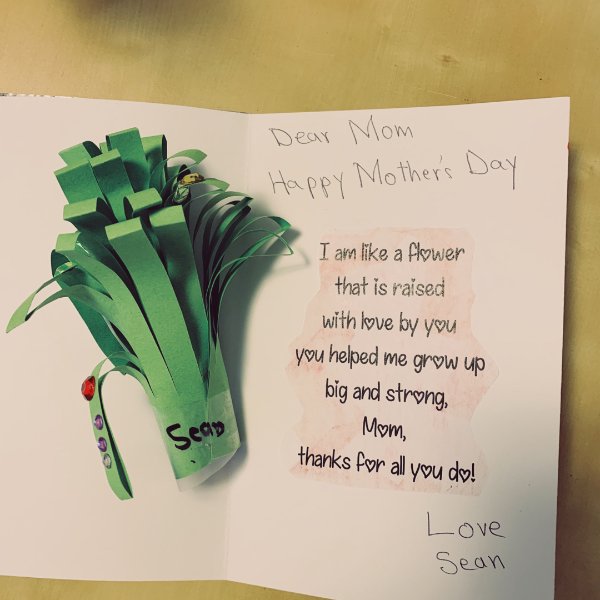 Dear Mom
Happy Mother's Day
I am like a flower
that is raised
with love by you
you helped me grow up
big and strong,
Mom,
thanks for all you do!
Sean
Love
Sean